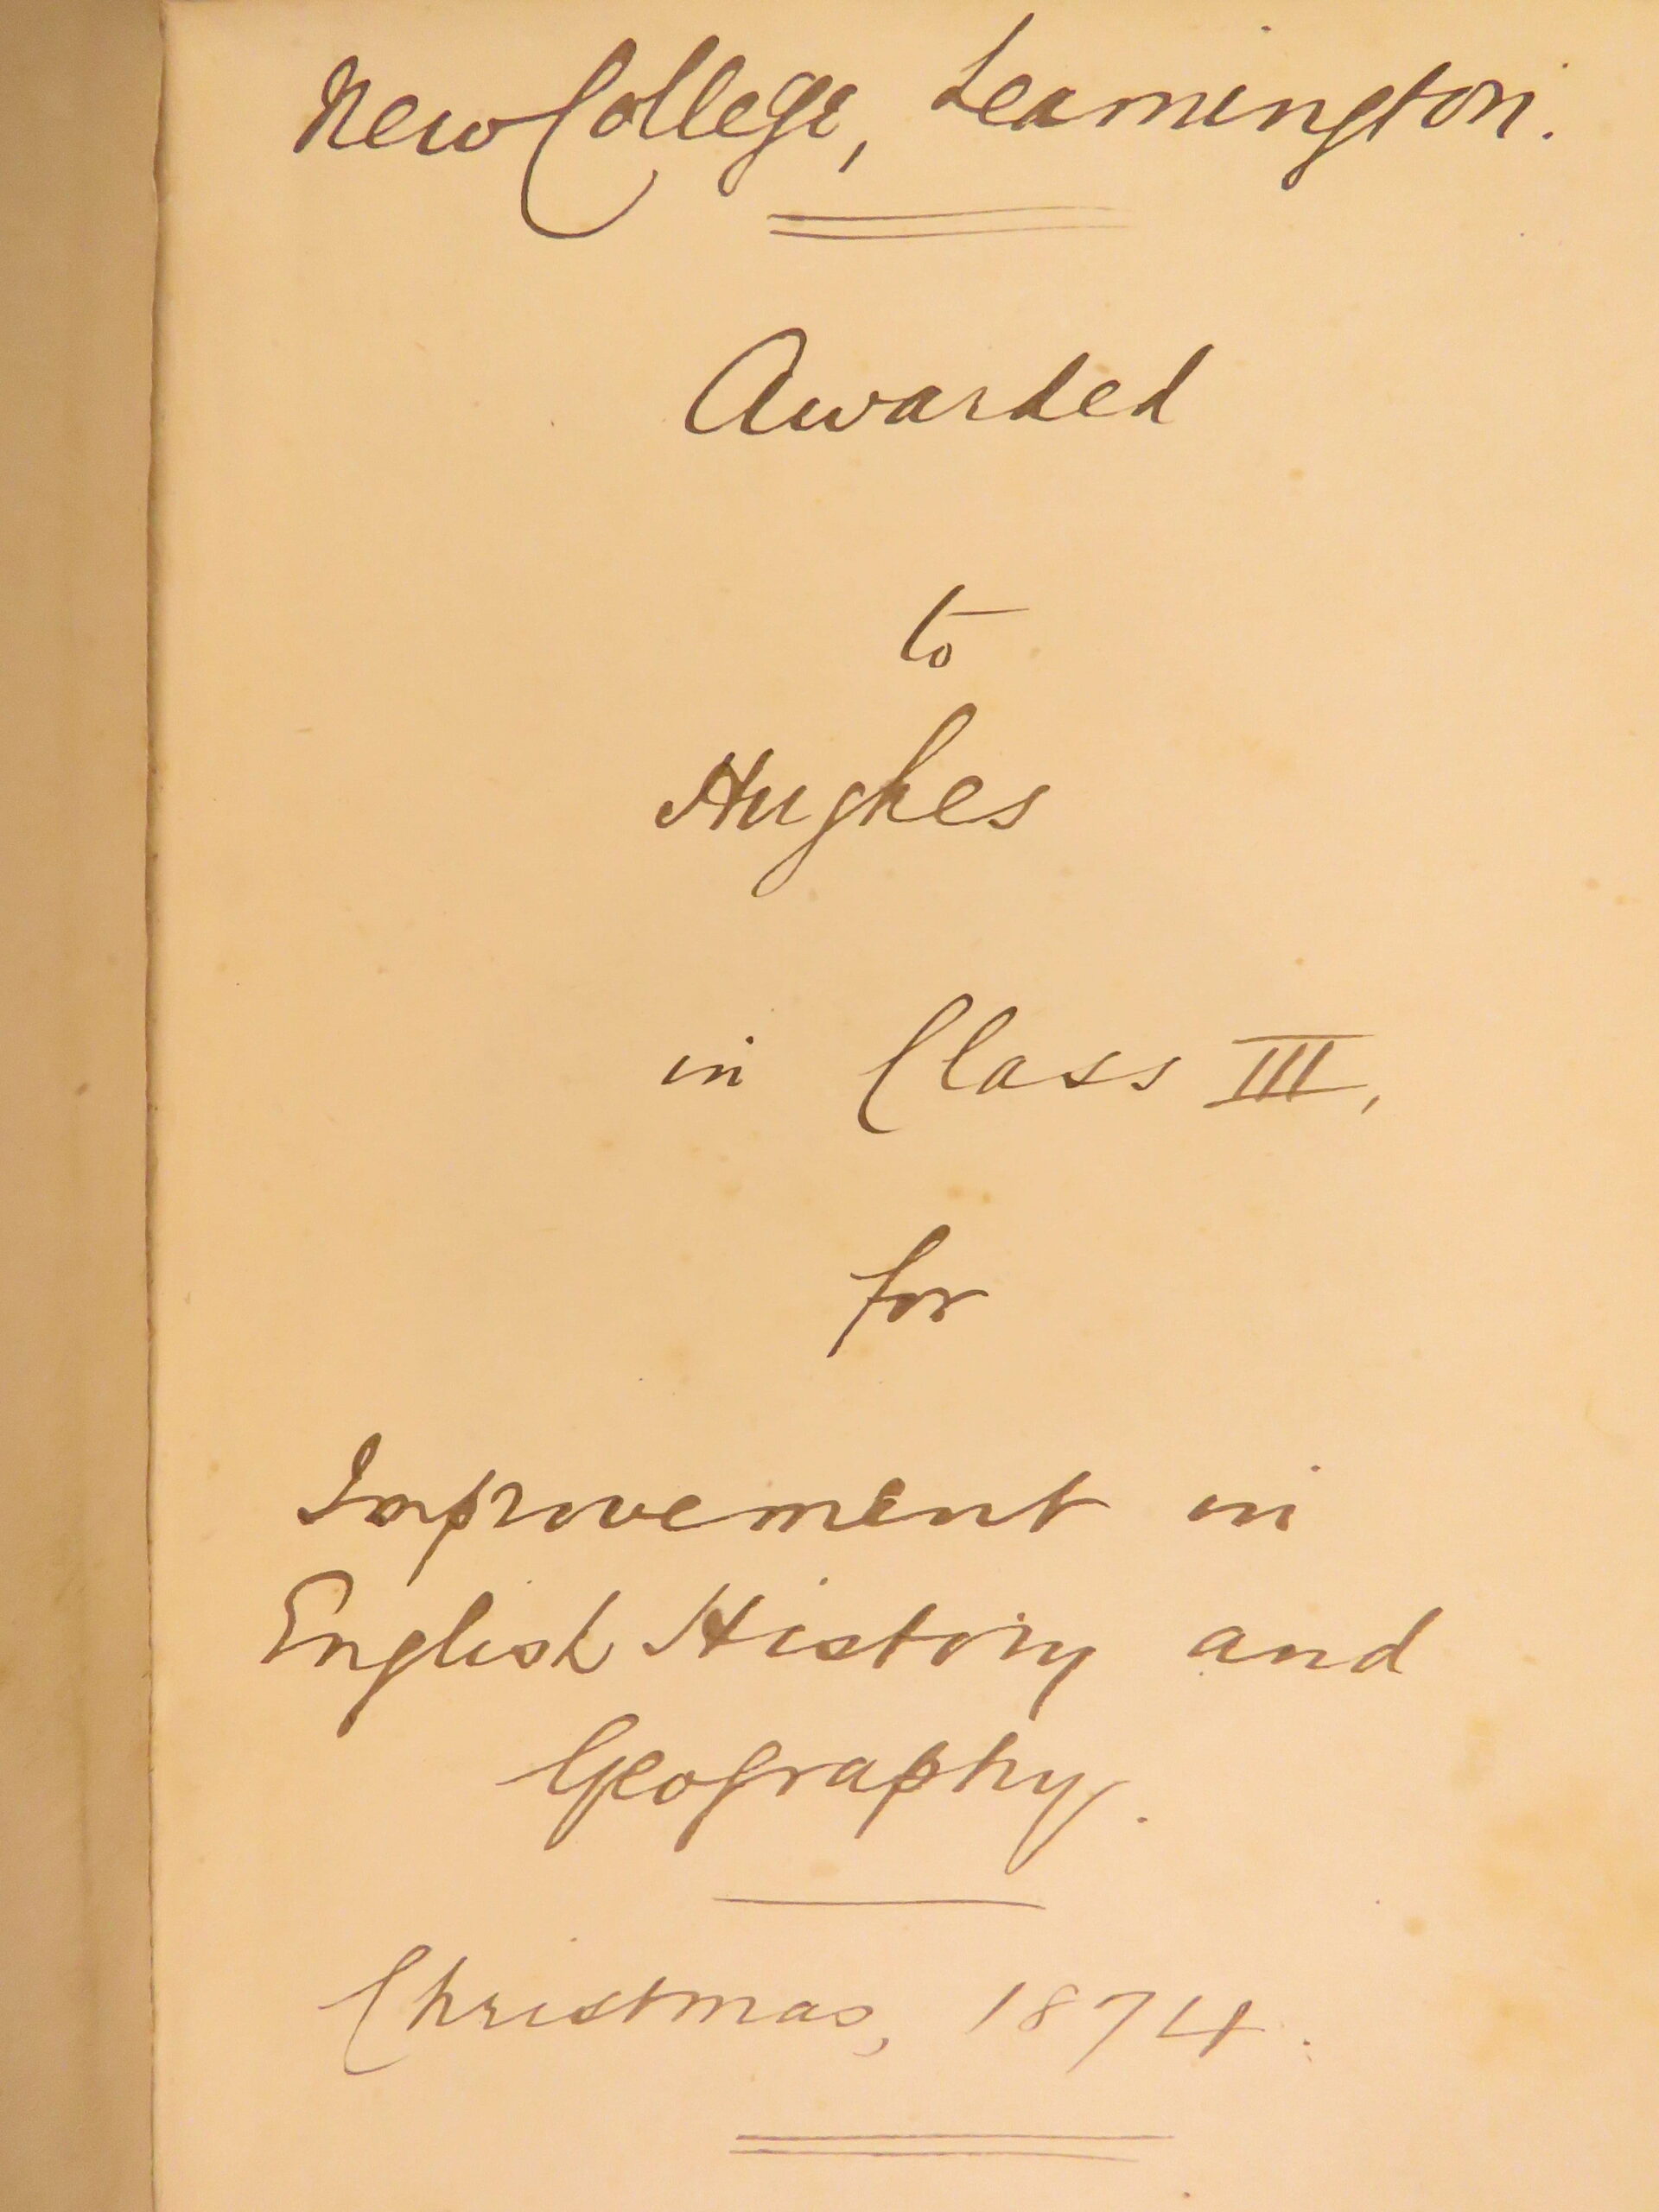 New College, Leamington.
Awarded
to
Hughes
in Class III,
for
Improvement in
English History and
Geography.
Christmas, 1874.